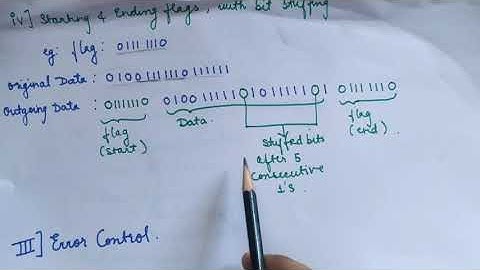 iv] Starting & Ending flags, with bit stuffing
eg: flag: 01111110
original Data: 0100 1111110 111111
Outgoing Data: 01111110 0100 11111010111110 1 01111110
flag (start) Data. flag (end).
Stuffed bits
after 5
consecutive
1's.
III] Error Control.